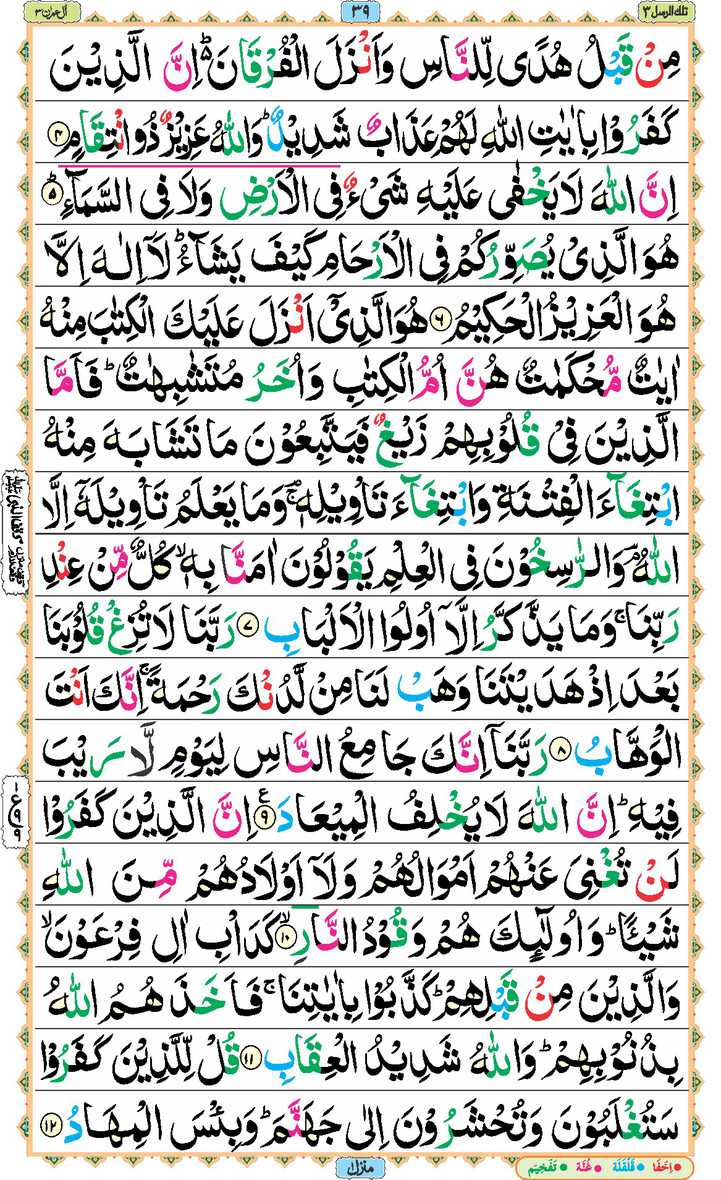 تلك الرسل ٣
٣٩
اٰل عمرٰن ٣
مِنْ قَبْلُ هُدًى لِّلنَّاسِ وَاَنْزَلَ الْفُرْقَانَ ؕ اِنَّ الَّذِيْنَ
كَفَرُوْا بِاٰيٰتِ اللّٰهِ لَهُمْ عَذَابٌ شَدِيْدٌ ؕ وَاللّٰهُ عَزِيْزٌ ذُو انْتِقَامٍ ۴
اِنَّ اللّٰهَ لَا يَخْفٰى عَلَيْهِ شَىْءٌ فِى الْاَرْضِ وَلَا فِى السَّمَآءِ ۵ؕ
هُوَ الَّذِىْ يُصَوِّرُكُمْ فِى الْاَرْحَامِ كَيْفَ يَشَآءُ ؕ لَاۤ اِلٰهَ اِلَّا
هُوَ الْعَزِيْزُ الْحَكِيْمُ ۶ هُوَ الَّذِىْۤ اَنْزَلَ عَلَيْكَ الْكِتٰبَ مِنْهُ
اٰيٰتٌ مُّحْكَمٰتٌ هُنَّ اُمُّ الْكِتٰبِ وَاُخَرُ مُتَشٰبِهٰتٌ ؕ فَاَمَّا
الَّذِيْنَ فِىْ قُلُوْبِهِمْ زَيْغٌ فَيَتَّبِعُوْنَ مَا تَشَابَهَ مِنْهُ
ابْتِغَآءَ الْفِتْنَةِ وَابْتِغَآءَ تَاْوِيْلِهٖ ۚ وَمَا يَعْلَمُ تَاْوِيْلَهٗۤ اِلَّا
اللّٰهُ ۘ وَالرّٰسِخُوْنَ فِى الْعِلْمِ يَقُوْلُوْنَ اٰمَنَّا بِهٖ ۙ كُلٌّ مِّنْ عِنْدِ
رَبِّنَا ۚ وَمَا يَذَّكَّرُ اِلَّاۤ اُولُوا الْاَلْبَابِ ۷ رَبَّنَا لَا تُزِغْ قُلُوْبَنَا
بَعْدَ اِذْ هَدَيْتَنَا وَهَبْ لَنَا مِنْ لَّدُنْكَ رَحْمَةً ۚ اِنَّكَ اَنْتَ
الْوَهَّابُ ۸ رَبَّنَاۤ اِنَّكَ جَامِعُ النَّاسِ لِيَوْمٍ لَّا رَيْبَ
فِيْهِ ؕ اِنَّ اللّٰهَ لَا يُخْلِفُ الْمِيْعَادَ ۹ ع اِنَّ الَّذِيْنَ كَفَرُوْا
لَنْ تُغْنِىَ عَنْهُمْ اَمْوَالُهُمْ وَلَاۤ اَوْلَادُهُمْ مِّنَ اللّٰهِ
شَيْئًا ؕ وَاُولٰٓئِكَ هُمْ وَقُوْدُ النَّارِ ۱۰ۙ كَدَاْبِ اٰلِ فِرْعَوْنَ ۙ
وَالَّذِيْنَ مِنْ قَبْلِهِمْ ؕ كَذَّبُوْا بِاٰيٰتِنَا ۚ فَاَخَذَهُمُ اللّٰهُ
بِذُنُوْبِهِمْ ؕ وَاللّٰهُ شَدِيْدُ الْعِقَابِ ۱۱ قُلْ لِّلَّذِيْنَ كَفَرُوْا
سَتُغْلَبُوْنَ وَتُحْشَرُوْنَ اِلٰى جَهَنَّمَ ؕ وَبِئْسَ الْمِهَادُ ۱۲
منزل ۱
اِخفَا قَلْقَلَة غُنَّة تَفْخِيْم